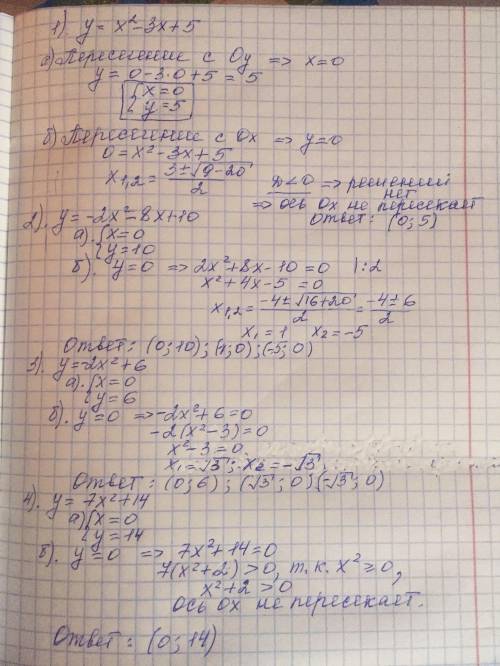 1) y = x² - 3x + 5
а) Пересечение с Oy => x=0
y = 0 - 3·0 + 5 = 5
{x=0
{y=5
б) Пересечение с Ox => y=0
0 = x² - 3x + 5
x1,2 = (3 ± √(9-20))/2 D<0 => решений нет
=> ось Ox не пересекает
Ответ: (0; 5)
2). y = -2x² - 8x + 10
а). {x=0
{y=10
б). y=0 => 2x² + 8x - 10 = 0 |:2
x² + 4x - 5 = 0
x1,2 = (-4 ± √(16+20))/2 = (-4 ± 6)/2
x1 = 1 x2 = -5
Ответ: (0; 10); (1; 0); (-5; 0)
3). y = -2x² + 6
а). {x=0
{y=6
б). y=0 => -2x² + 6 = 0
-2(x² - 3) = 0
x² - 3 = 0
x1 = √3; x2 = -√3
Ответ: (0; 6); (√3; 0) (-√3; 0)
4). y = 7x² + 14
а) {x=0
{y=14
б). y=0 => 7x² + 14 = 0
7(x² + 2) > 0, т.к. x² ≥ 0,
x² + 2 > 0
ось Ox не пересекает.
Ответ: (0; 14)